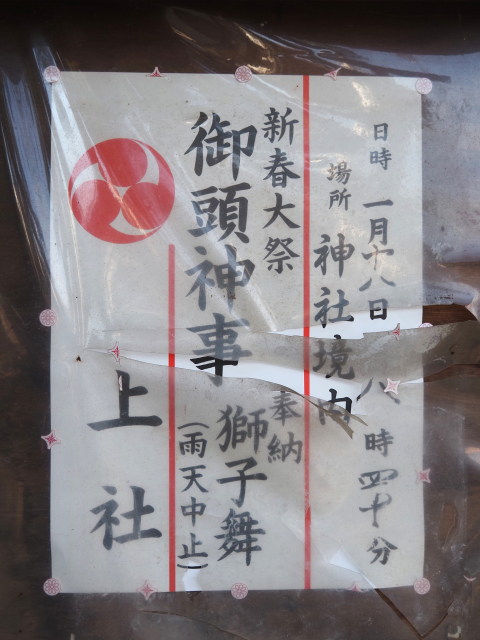 日時 一月十八日 八時四十分
場所 神社境内
新春大祭 奉納
御頭神事 獅子舞
(雨天中止)
上社